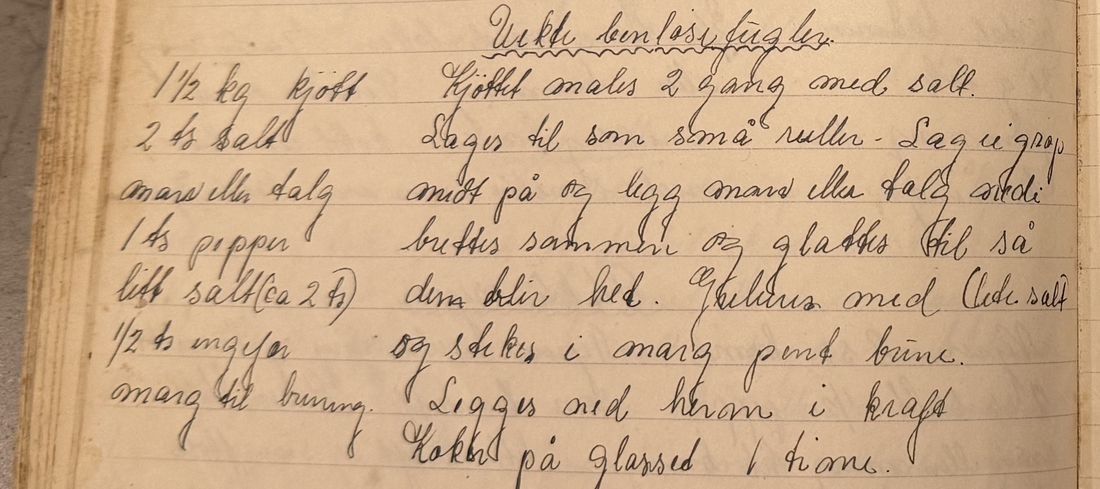 Ekte benløse fugler.
1 1/2 kg kjött Kjöttet males 2 gang med salt.
2 ts salt Lages til som små ruller - Lag ei grop
marv eller talg midt på og legg marv eller talg nedi
1 ts pepper brettes sammen og glattes til så
litt salt (ca 2 ts) den blir hel. med (lite salt
1/2 ts ingefer og stekes i marg pent brune.
marg til bruning. Legges ned herm i kraft
Koker på glasset 1 time.